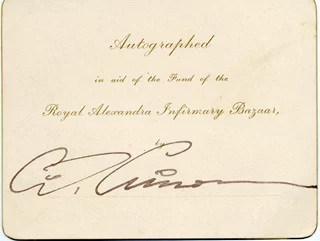 Autographed
in aid of the Fund of the
Royal Alexandra Infirmary Bazaar,
by